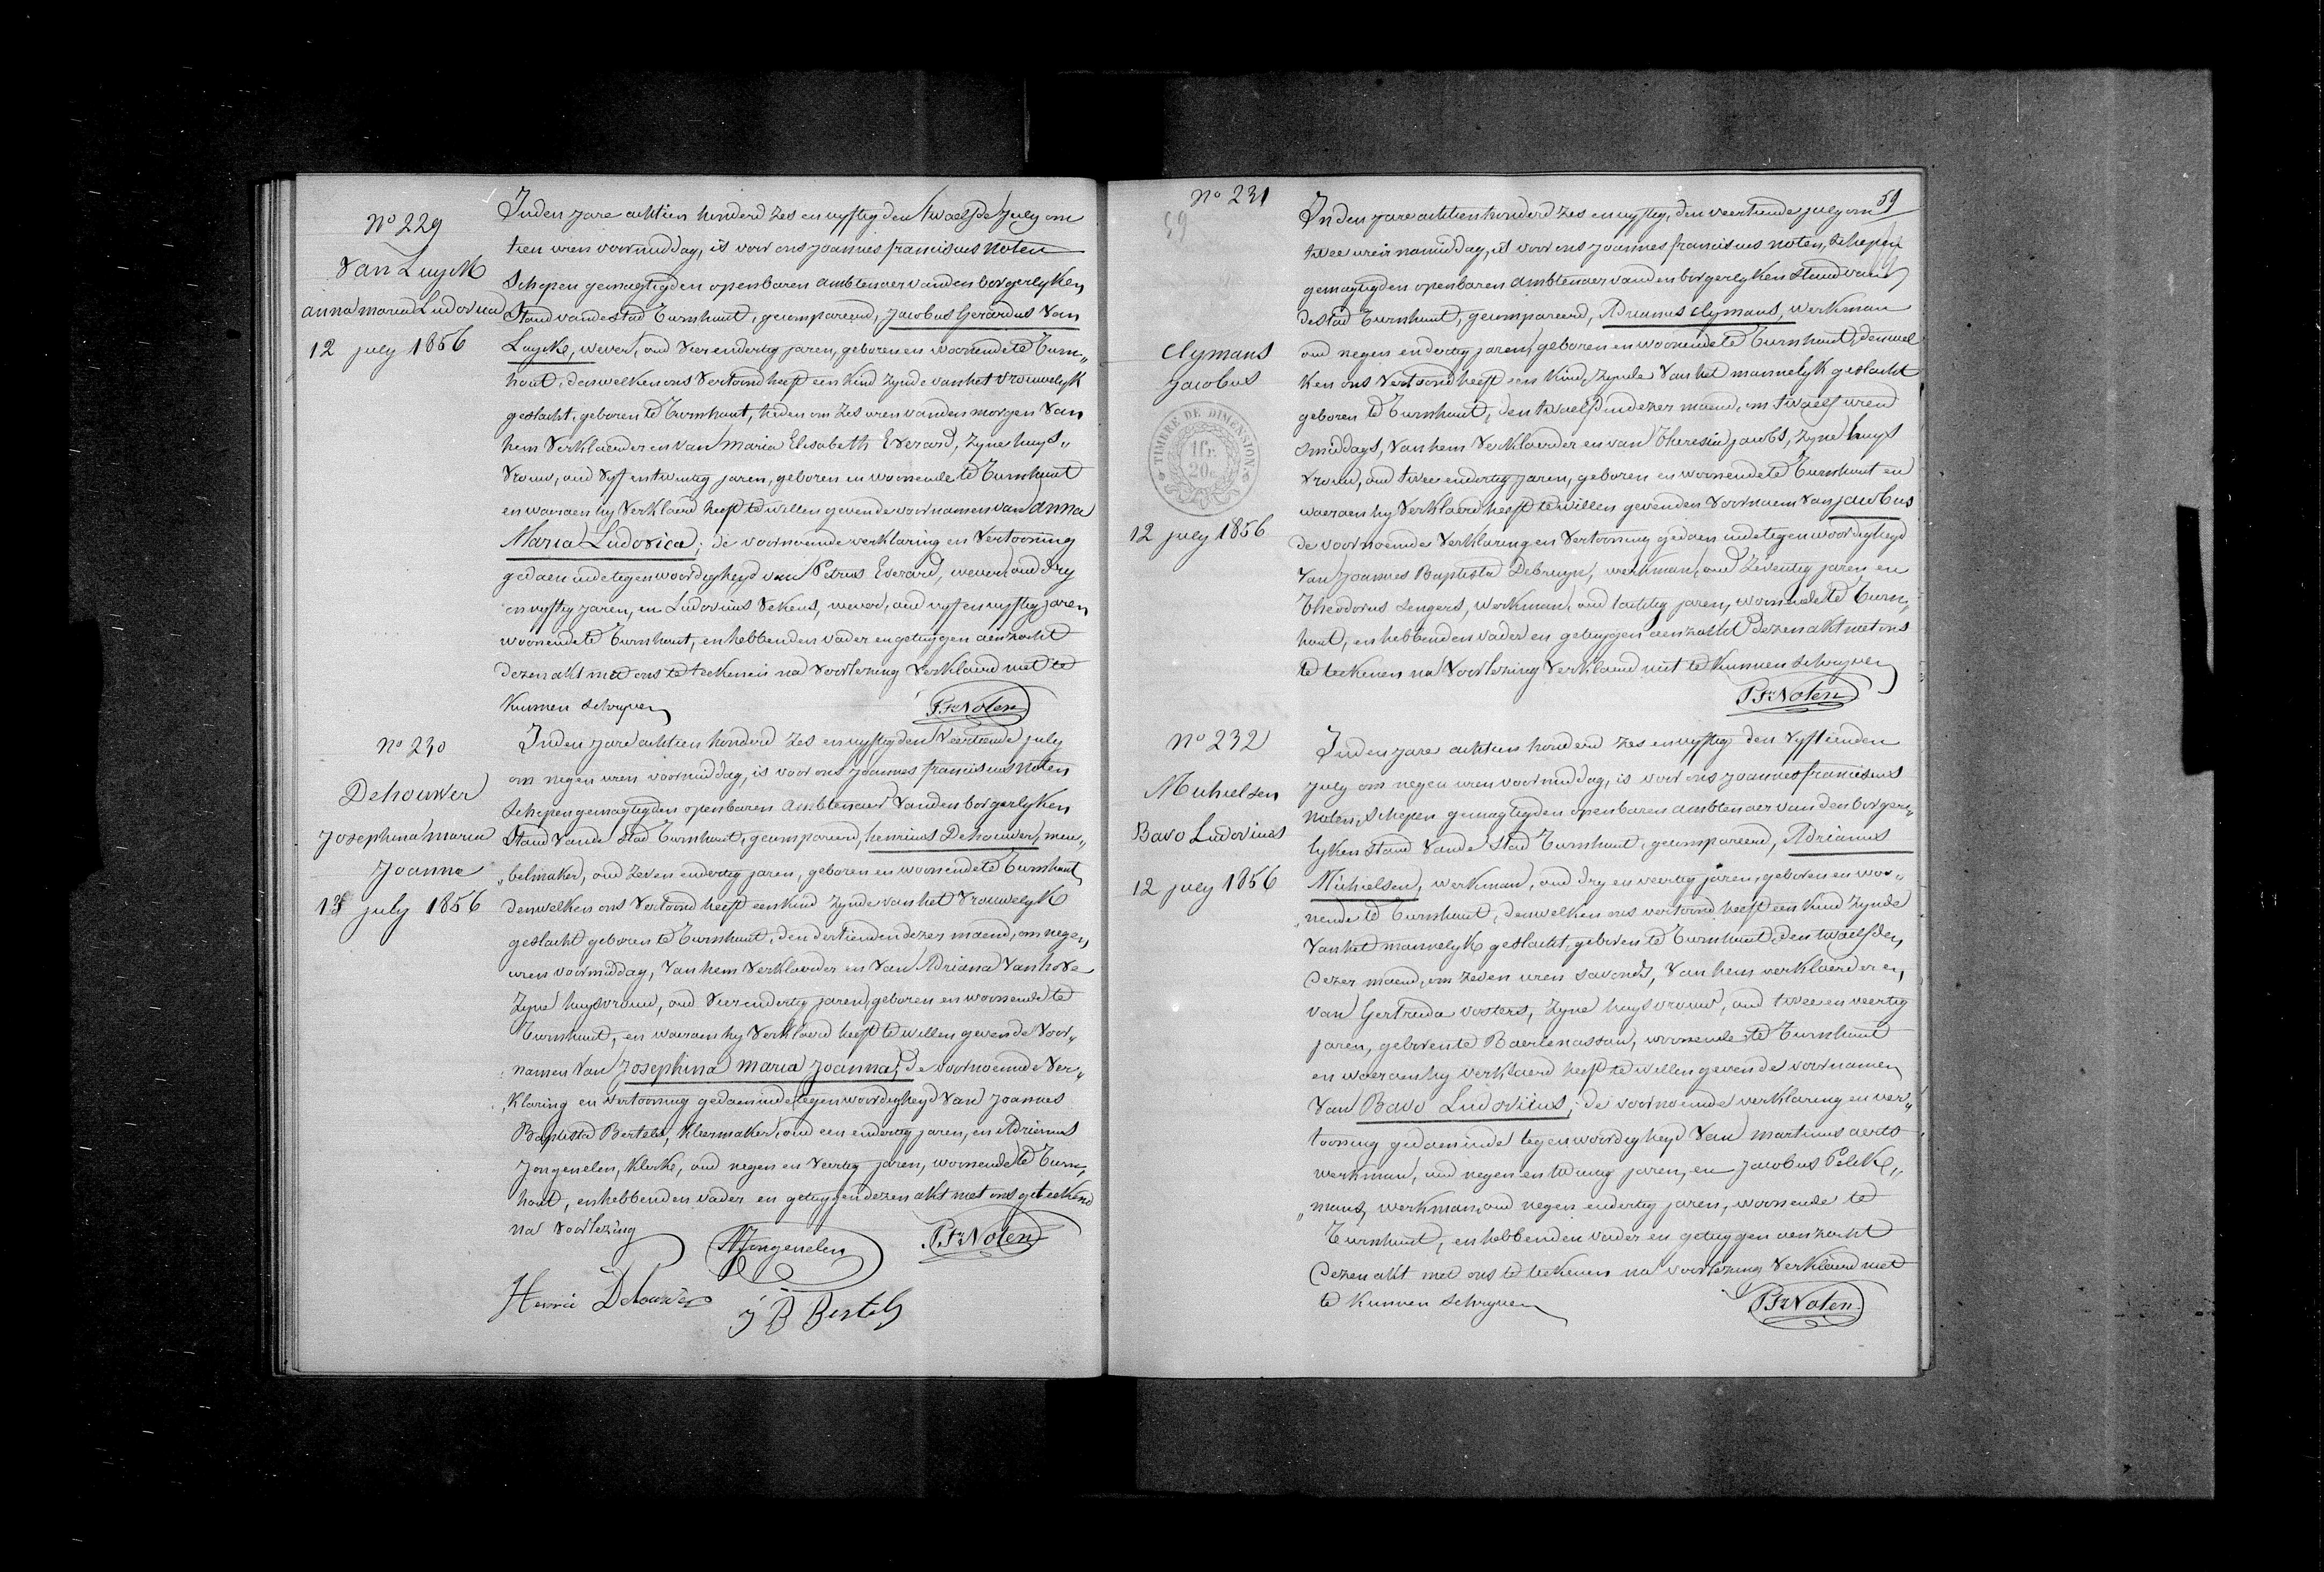 No 229
Van Luyck
anna maria Ludovica
12 july 1856
In den jare achtien honderd zes en vyftig den twaelfde July om
tien uren voormiddag, is voor ons Joannes franciscus Noten
Schepen gemagtigden openbaren ambtenaer van den borgerlyken
Stand van de stad Turnhout, gecompareerd, Jacobus Gerardus Van
Luyck, wever, oud vier en dertig jaren, geboren en woonende te Turn„
hout, denwelken ons vertoond heeft een kind zynde van het vrouwelyk
geslacht, geboren te Turnhout, heden om zes uren van den morgen van
hem verklaerder en van Maria Elisabeth Everard, zyne huys„
vrouw, oud vyf en twintig jaren, geboren en woonende te Turnhout
en waeraen hy verklaerd heeft te willen geven de voornamen van Anna
Maria Ludovica; de voornoemde verklaring en vertooning
gedaen in de tegenwoordigheyd van Petrus Everard, wever, oud dry
en vyftig jaren, en Ludovicus Vekens, wever, oud vyf en vyftig jaren
woonende te Turnhout, en hebben den vader en getuygen aenzocht
dezen akt met ons te teekenen na voorlezing verklaerd niet te
kunnen schryven
P.Fr Noten
No 230
Dehouwer
Josephina maria
Joanna
13 july 1856
In den jare achtien honderd zes en vyftig den veertiende july
om negen uren voormiddag, is voor ons Joannes franciscus Noten
Schepen gemagtigden openbaren ambtenaer van den borgerlyken
Stand van de stad Turnhout, gecompareerd, henricus Dehouwer, meu„
„belmaker, oud zeven en dertig jaren, geboren en woonende te Turnhout
denwelken ons vertoond heeft een kind zynde van het vrouwelyk
geslacht geboren te Turnhout, den dertienden dezer maend, om negen
uren voormiddag, van hem verklaerder en van Adriana Vanhove
zyne huysvrouw, oud vier en dertig jaren, geboren en woonende te
Turnhout, en waeraen hy verklaerd heeft te willen geven de voor„
namen van Josephina maria Joanna; de voornoemde ver„
„klaring en vertooning gedaen in de tegenwoordigheyd van Joannes
Baptista Bertels, kleermaker, oud een en dertig jaren, en Adrianus
Jongenelen, klerke, oud negen en veertig jaren, woonende te Turn„
hout, en hebben den vader en getuygen dezen akt met ons geteekend
na voorlezing
A Jongenelen
P.Fr Noten
Henri Dehouwer
J B Bertels
59
No 231
59
Clymans
Jacobus
TIMBRE DE DIMENSION
1fr.
20c.
12 july 1856
In den jare achtien honderd zes en vyftig, den veertiende july om
twee uren namiddag, is voor ons Joannes franciscus Noten, schepen
gemagtigden openbaren ambtenaer van den borgerlyken stand van
de stad Turnhout, gecompareerd, Adrianus Clymans, werkman
oud negen en dertig jaren, geboren en woonende te Turnhout, denwel
ken ons vertoond heeft een kind, zynde van het mannelyk geslacht
geboren te Turnhout, den twaelfden dezer maend, om twaelf uren
smiddags, van hem verklaerder en van Theresia jacobs, zyne huys
vrouw, oud twee en dertig jaren, geboren en woonende te Turnhout en
waeraen hy verklaerd heeft te willen geven den voornaem van Jacobus
de voornoemde verklaring en vertooning gedaen in de tegenwoordigheyd
van Joannes Baptista Debruyn, werkman, oud zeventig jaren en
Theodorus Lengers, werkman, oud tachtig jaren, woonende te Turn„
hout, en hebben den vader en getuygen aenzocht dezen akt met ons
te teekenen na voorlezing verklaerd niet te kunnen schryven
P.Fr Noten
No 232
Michielsen
Bavo Ludovicus
12 july 1856
In den jare achtien honderd zes en vyftig den vyftienden
july om negen uren voormiddag, is voor ons Joannes franciscus
Noten, schepen gemagtigden openbaren ambtenaer van den borger„
lyken stand van de stad Turnhout, gecompareerd, Adrianus
Michielsen, werkman, oud dry en veertig jaren, geboren en woo„
„nende te Turnhout, denwelken ons vertoond heeft een kind zynde
van het mannelyk geslacht, geboren te Turnhout, den twaelfden
dezer maend, om zeven uren savonds, van hem verklaerder en
van Gertruda Vosters, zyne huysvrouw, oud twee en veertig
jaren, geboren te Baerlenassau, woonende te Turnhout
en waeraen hy verklaerd heeft te willen geven de voornamen
van Bavo Ludovicus; de voornoemde verklaring en ver„
tooning gedaen in de tegenwoordigheyd van Martinus aerts
werkman, oud negen en twintig jaren, en Jacobus Pelck„
„mans, werkman, oud negen en dertig jaren, woonende te
Turnhout, en hebben den vader en getuygen aenzocht
dezen akt met ons te teekenen na voorlezing verklaerd niet
te kunnen schryven
P.Fr Noten